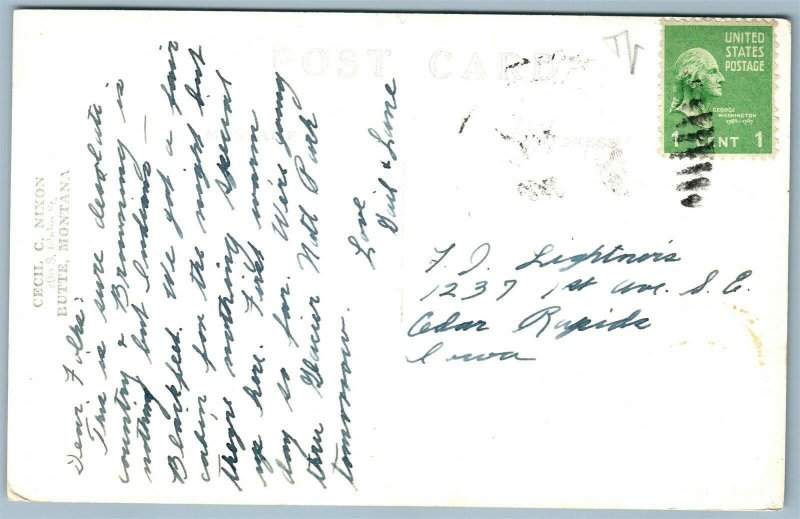 POST CARD
UNITED
STATES
POSTAGE
GEORGE
WASHINGTON
1789-1797
1 CENT 1
CECIL C. NIXON
BUTTE, MONTANA
Dear Folks:
This is sure desolate
country & Browning is
nothing but Indians—
Blackfeet. We got a fair
cabin for the night but
theys nothing special
up here. First warm
day so far. We're going
thru Glacier Natl Park
tomorrow.
Love
Gail & Lane
F. J. Lightner's
1237 1st Ave. S. E.
Cedar Rapids
Iowa